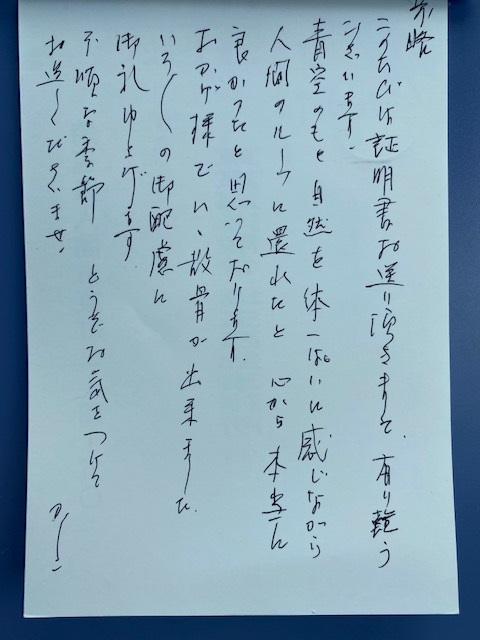 前略
このたびは証明書お送り頂きまして、有り難う
ございます。
青空のもと自然を体一ぱいに感じながら
人間のルーツに還れたと心から本当に
良かったと思っております。
おかげ様でいい散骨が出来ました。
いろ〱の御配慮に
御礼申上げます。
不順な季節 どうぞお気をつけて
お過しくださいませ。
かしこ